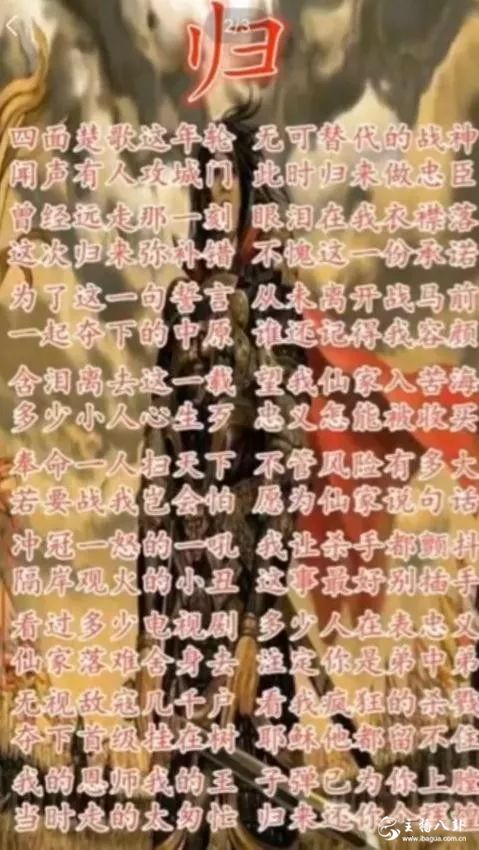 2/3
归
四面楚歌这年轮 无可替代的战神
闻声有人攻城门 此时归来做忠臣
曾经远走那一刻 眼泪在我衣襟落
这次归来弥补错 不愧这一份承诺
为了这一句誓言 从未离开战马前
一起夺下的中原 谁还记得我容颜
含泪离去这一载 望我仙家入苦海
多少小人心生歹 忠义怎能被收买
奉命一人扫天下 不管风险有多大
若要战我岂会怕 愿为仙家说句话
冲冠一怒的一吼 我让杀手都颤抖
隔岸观火的小丑 这事最好别插手
看过多少电视剧 多少人在表忠义
仙家落难舍身去 注定你是弟中弟
无视敌寇几千户 看我疯狂的杀戮
夺下首级挂在树 耶稣他都留不住
我的恩师我的王 子弹已为你上膛
当时走的太匆忙 归来还你
主播八卦
www.ibagua.com.cn